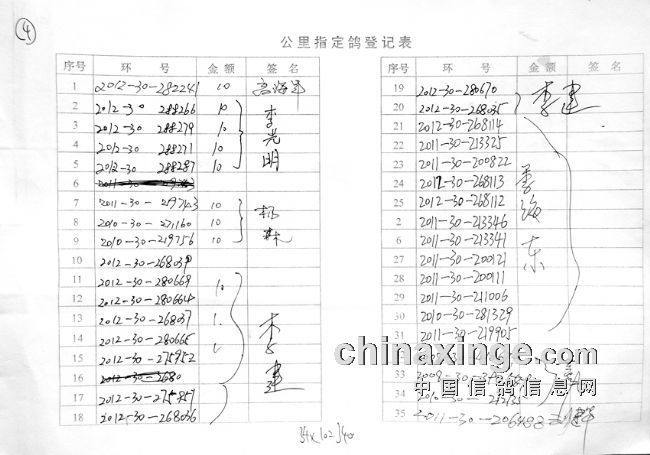 ④
公里指定鸽登记表
序号 环号 金额 签名
1 2012-30-282241 10
2 2012-30 288266 10
3 2012-30 288279 10
4 2012-30 288271 10
5 2012-30 288287 10
李光明
6
7 2011-30-219743 10
8 2010-30-271160 10
9 2010-30-219756 10
10 2012-30-268039
11 2012-30-280669 10
12 2012-30-280664
13 2012-30-268037
14 2012-30-280665
15 2012-30-275952
李建
16 2012-30-2680
17 2012-30-275957
18 2012-30-268036
序号 环号 金额 签名
19 2012-30-280670
20 2012-30-268035
李建
21 2012-30-268114
22 2011-30-213325
23 2011-30-200822
24 2012-30-268113
25 2012-30-268112
2 2011-30-213346
6 2011-30-213341
27 2011-30-200121
28 2011-30-200111
29 2011-30-211006
30 2010-30-281329
31 2011-30-219905
33
34
35 2011-30-206482
34×10=340
chinaxinge.com
中国信鸽信息网